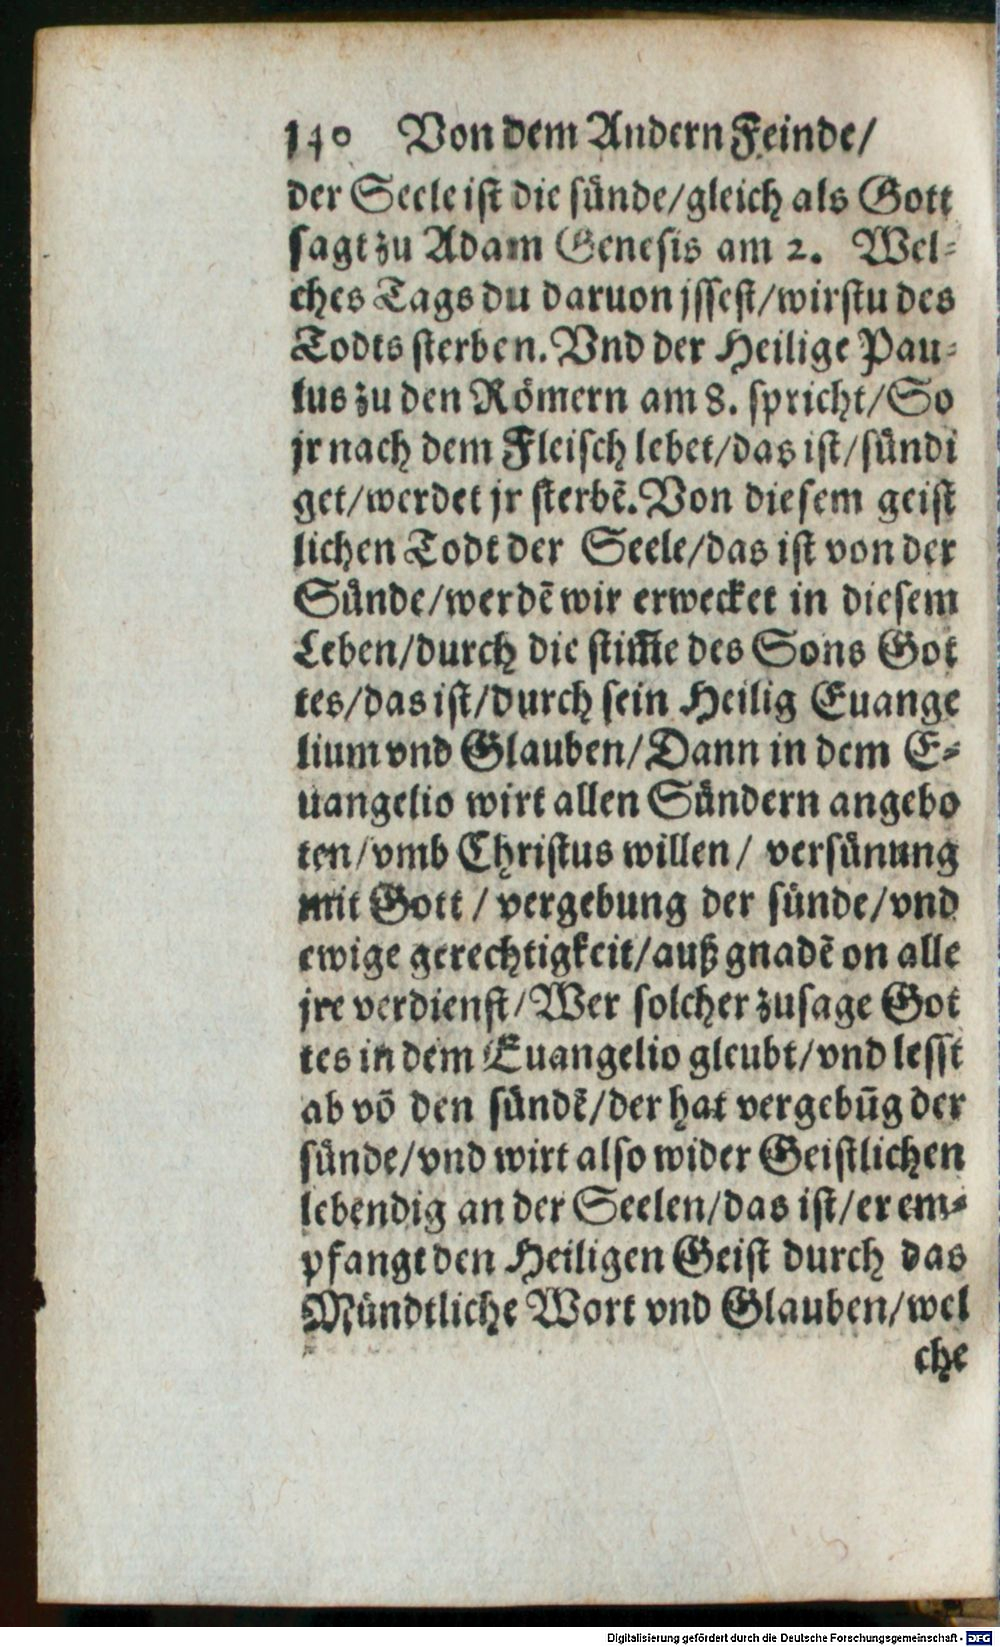 140 Von dem Andern Feinde/
der Seele ist die sünde/gleich als Gott
sagt zu Adam Genesis am 2. Wel-
ches Tags du daruon jssest/wirstu des
Todts sterben. Vnd der Heilige Pau-
lus zu den Römern am 8. spricht/So
jr nach dem Fleisch lebet/das ist/sündi
get/werdet jr sterbẽ. Von diesem geist
lichen Todt der Seele/das ist von der
Sünde/werdẽ wir erwecket in diesem
Leben/durch die stim̃e des Sons Got
tes/das ist/durch sein Heilig Euange
lium vnd Glauben/Dann in dem E-
uangelio wirt allen Sündern angebo
ten/vmb Christus willen/ versünung
mit Gott/ vergebung der sünde/vnd
ewige gerechtigkeit/auß gnadẽ on alle
jre verdienst/Wer solcher zusage Got
tes in dem Euangelio gleubt/vnd lesst
ab võ den sündẽ/der hat vergebũg der
sünde/vnd wirt also wider Geistlichen
lebendig an der Seelen/das ist/er em-
pfangt den Heiligen Geist durch das
Mündtliche Wort vnd Glauben/wel
che
Digitalisierung gefördert durch die Deutsche Forschungsgemeinschaft - DFG